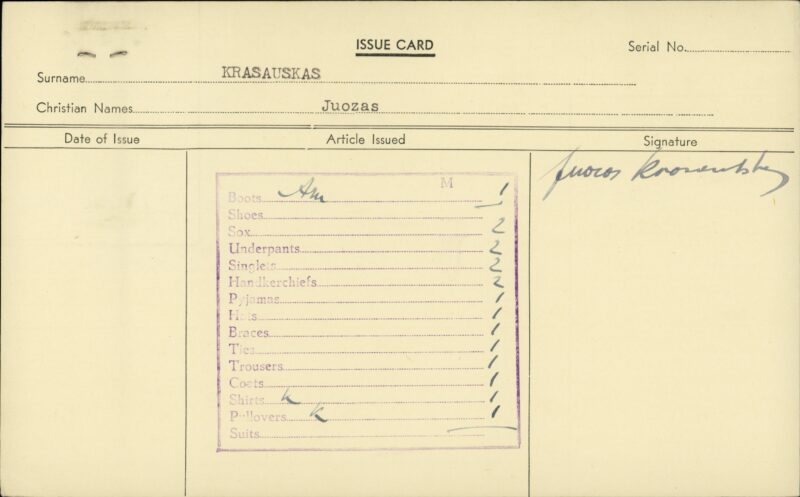 ISSUE CARD
Serial No.
Surname KRASAUSKAS
Christian Names Juozas
Date of Issue Article Issued Signature
M
Boots Am 1
Shoes
Sox 2
Underpants 2
Singlets 2
Handkerchiefs 2
Pyjamas 1
Hats 1
Braces 1
Ties 1
Trousers 1
Coats 1
Shirts K 1
Pullovers K 1
Suits
Juozas